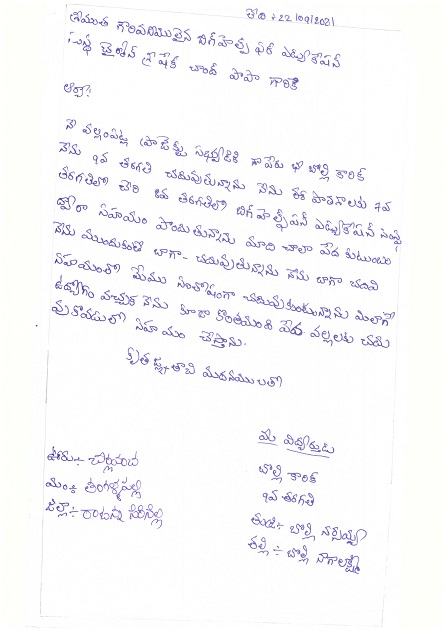 తేది :- 22/09/2021
శ్రీయుత గౌరవనియులైన బిగ్‌హెల్ప్ ఫర్ ఎడ్యుకేషన్
సంస్థ చైర్మెన్ షేక్ చాంద్ పాషా గారికి
నా పేరు బొల్లి కార్తిక్
నేను 9వ తరగతి చదువుతున్నాను నేను ఈ పాఠశాలకు 7వ
తరగతిలో చేరి 8వ తరగతిలో బిగ్‌హెల్ప్ ఎడ్యుకేషన్ సంస్థ
ద్వారా సహాయం పొందుతున్నాను మాది చాలా పేద కుటుంబం
నేను ముందుకంటే బాగా చదువుతున్నాను నేను బాగా చదివి
సహాయంతో మేము సంతోషంగా చదువుకుంటున్నాను మిలాగే
ఉద్యోగం వచ్చాక నేను కూడా కొంతమంది పేద పిల్లలకు చదు
వుకొవడంలో సహాయం చేస్తాను.
కృతజ్ఞతాభి వందనములతో
మీ విద్యార్థుడు
బొల్లి కార్తిక్
9వ తరగతి
తండ్రి :- బొల్లి నర్సయ్య
తల్లి :- బొల్లి నాగలక్ష్మి
ఊరు :-
మం :- తంగళ్ళపల్లి
జిల్లా :- రాజన్న సిరిసిల్ల